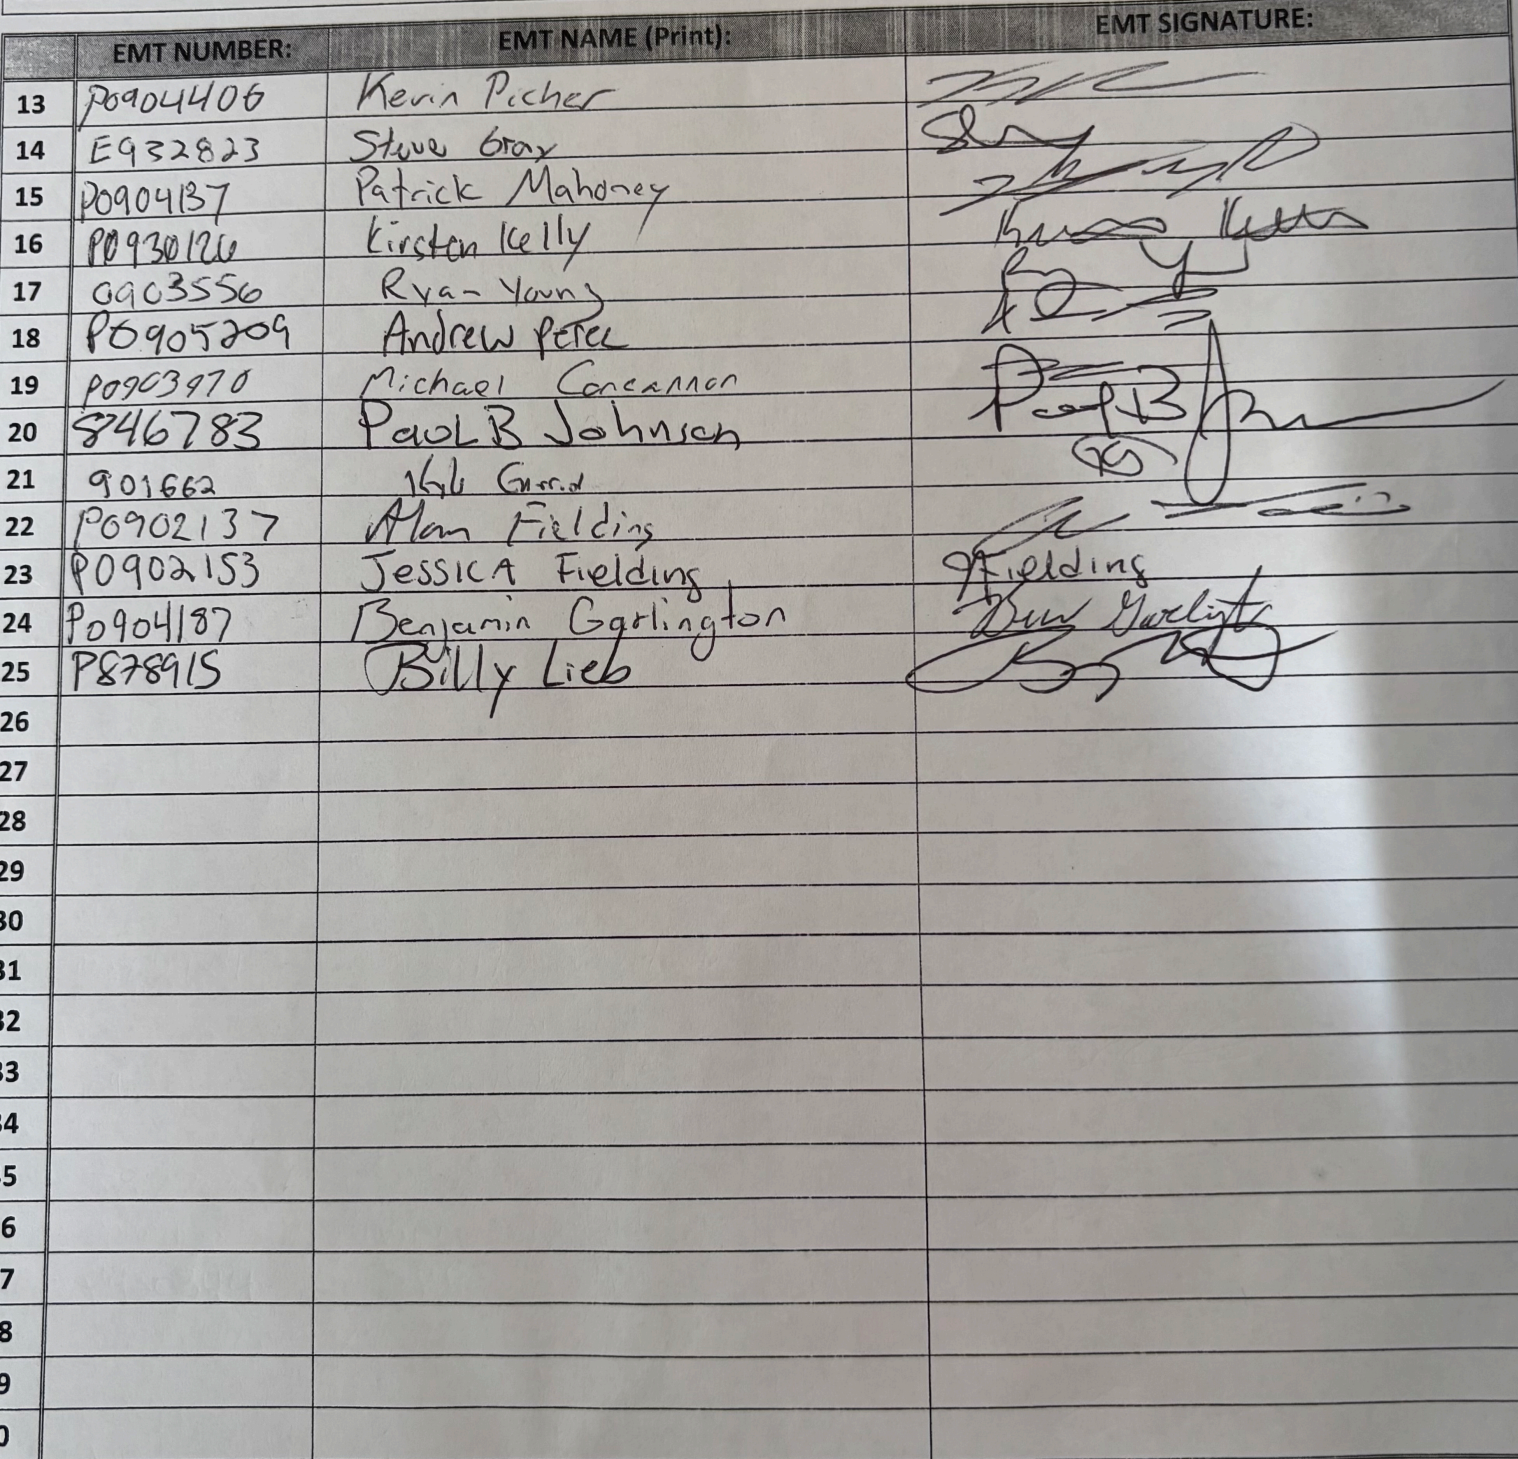 EMT NUMBER: EMT NAME (Print): EMT SIGNATURE:
13 P0904406 Kevin Picher
14 E932823 Steve Gray
15 P0904137 Patrick Mahoney
16 P0930126 Kirsten Kelly
17 0903556 Ryan Young
18 P0905209 Andrew Peter
19 P0903970 Michael Concannon
20 8746783 Paul B Johnson Paul B
21 901662
22 P0902137 Alan Fielding
23 P0902153 JESSICA Fielding JFielding
24 P0904187 Benjamin Garlington
25 P878915 Billy Lieb
26
27
28
29
30
31
32
33
34
5
6
7
8
9
0